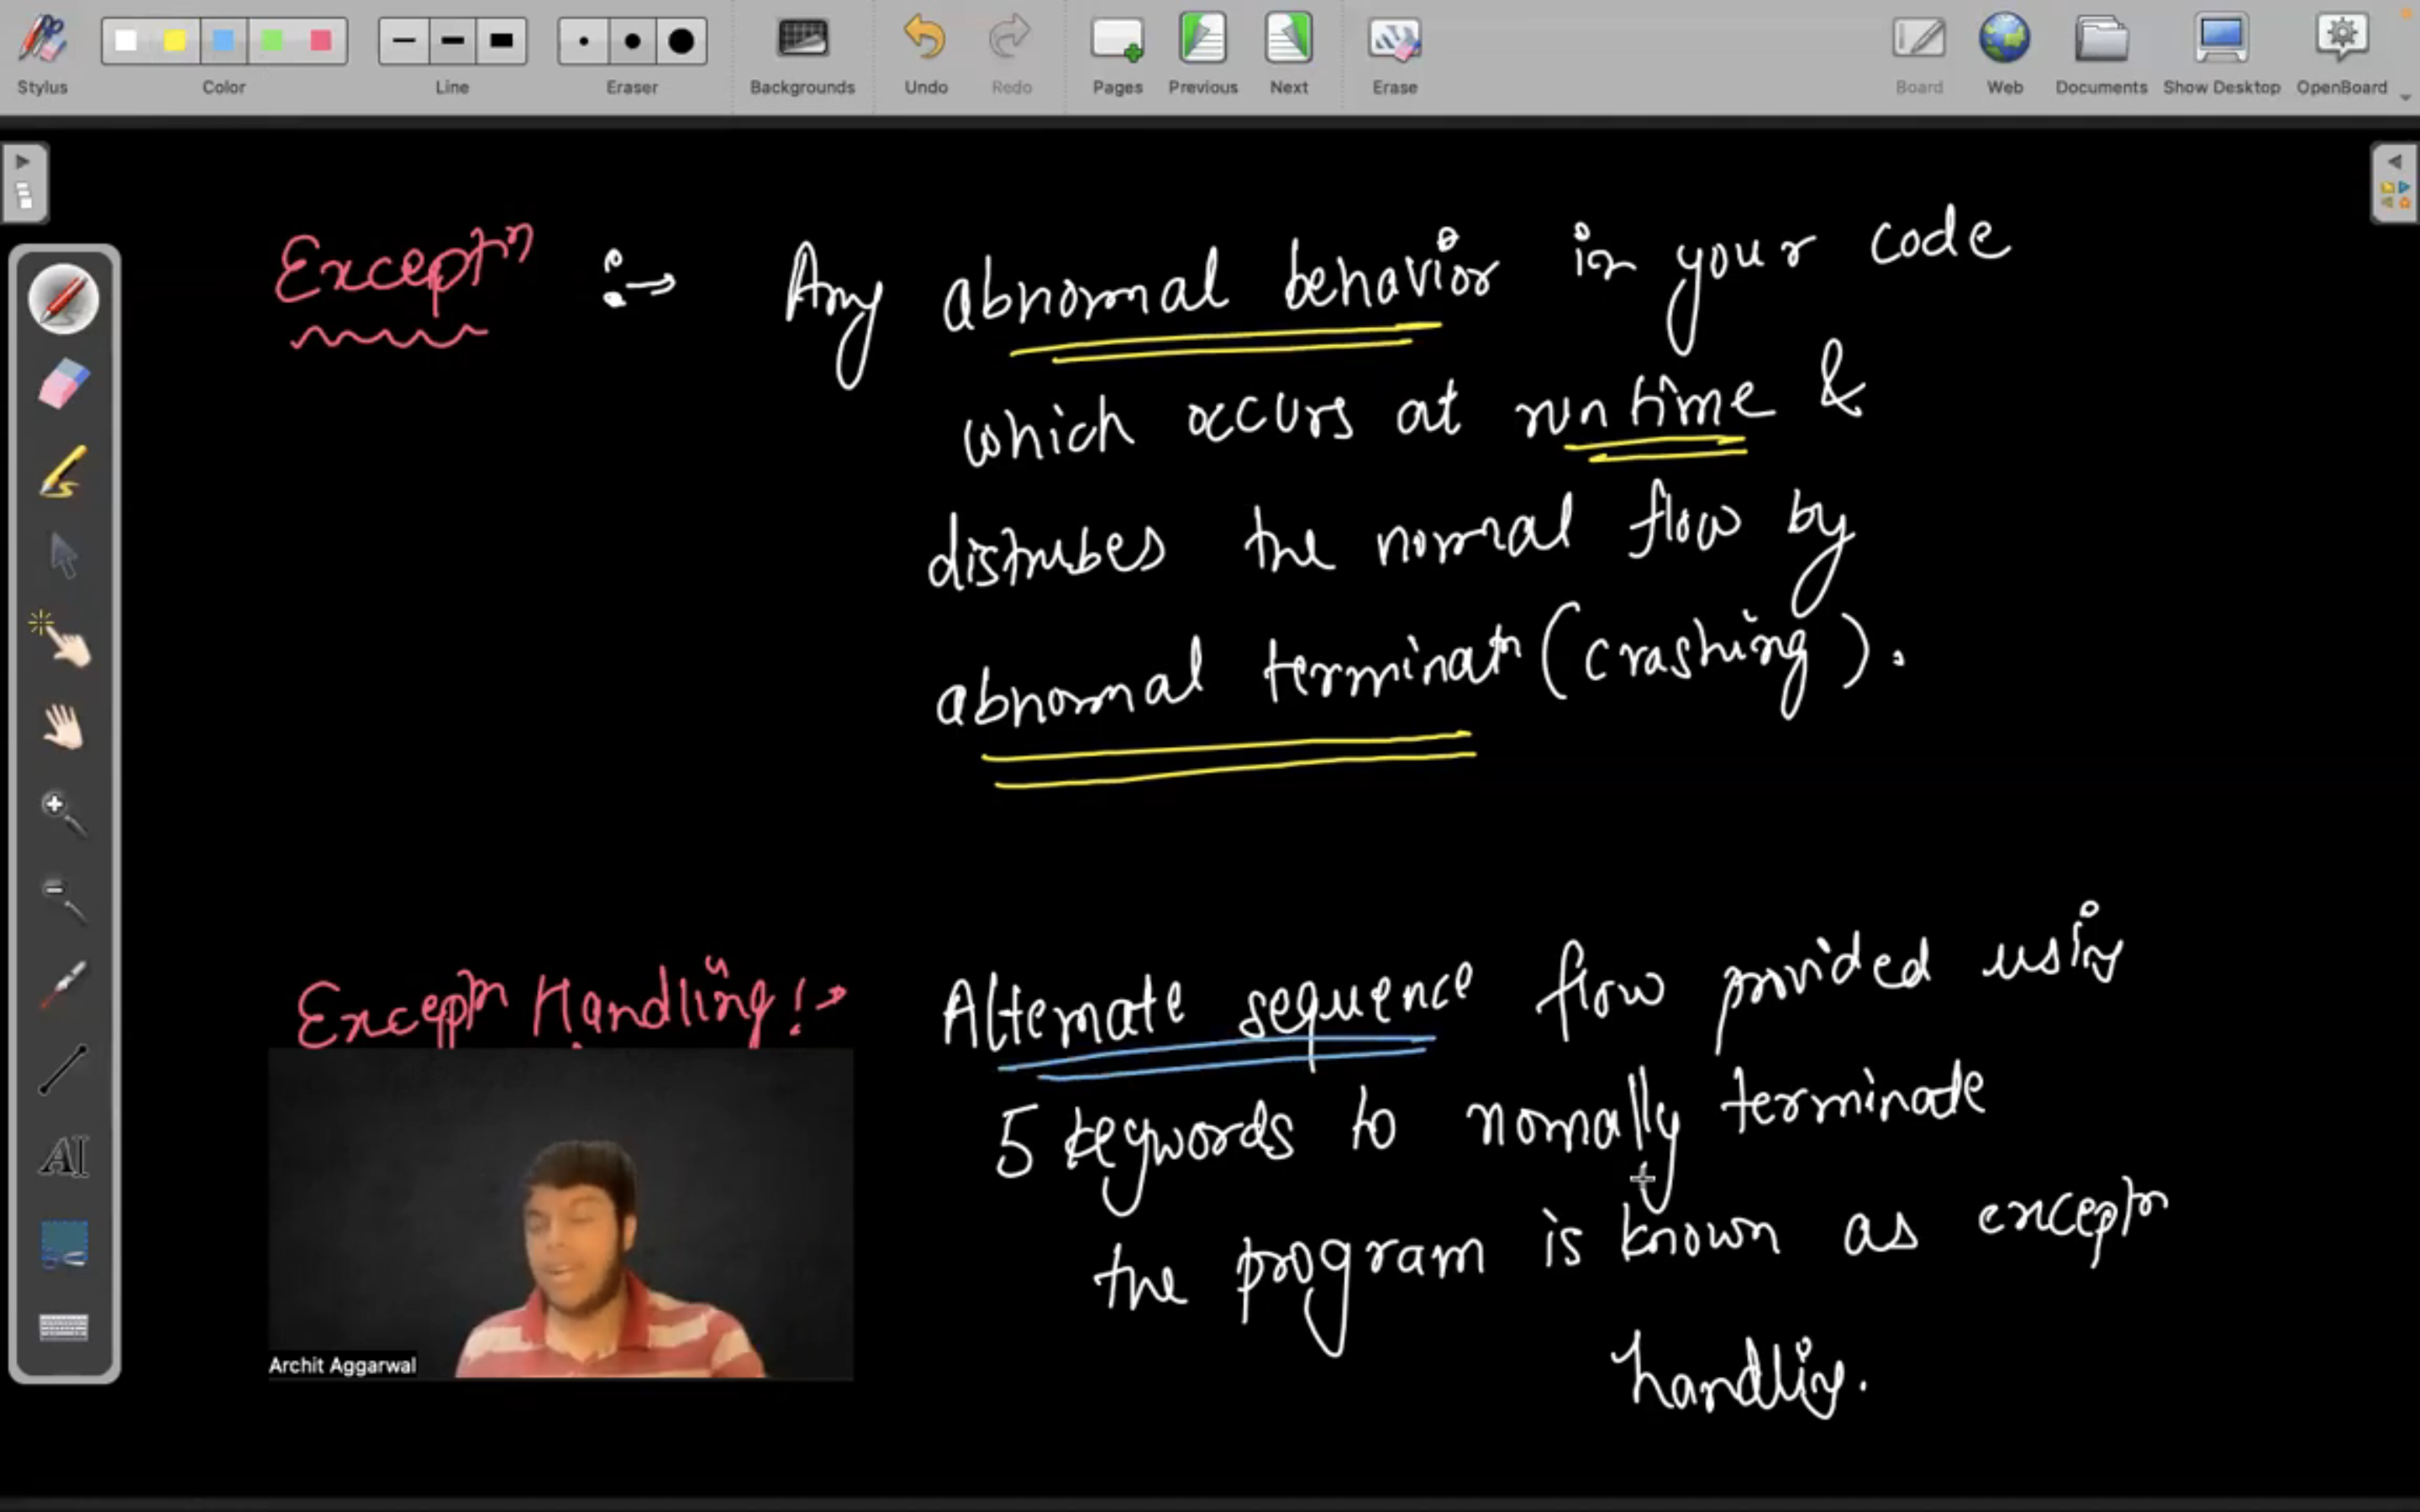 Stylus Color Line Eraser Backgrounds Undo Redo Pages Previous Next Erase Board Web Documents Show Desktop OpenBoard
Exceptn :→ Any abnormal behavior in your code
which occurs at runtime &
distrubes the normal flow by
abnormal terminatn (crashing).
Exceptn Handling :→ Alternate sequence flow provided using
5 keywords to nomally terminate
the program is known as exceptn
handling.
AI
Archit Aggarwal